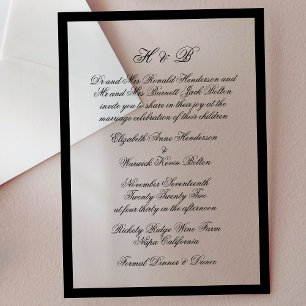 H & B
Dr and Mrs Ronald Henderson and
Mr and Mrs Burnett Jack Bolton
invite you to share in their joy at the
marriage celebration of their children
Elizabeth Anne Henderson
&
Warwick Kevin Bolton
November Seventeenth
Twenty Twenty Two
at four thirty in the afternoon
Rickety Ridge Wine Farm
Napa California
Formal Dinner & Dance